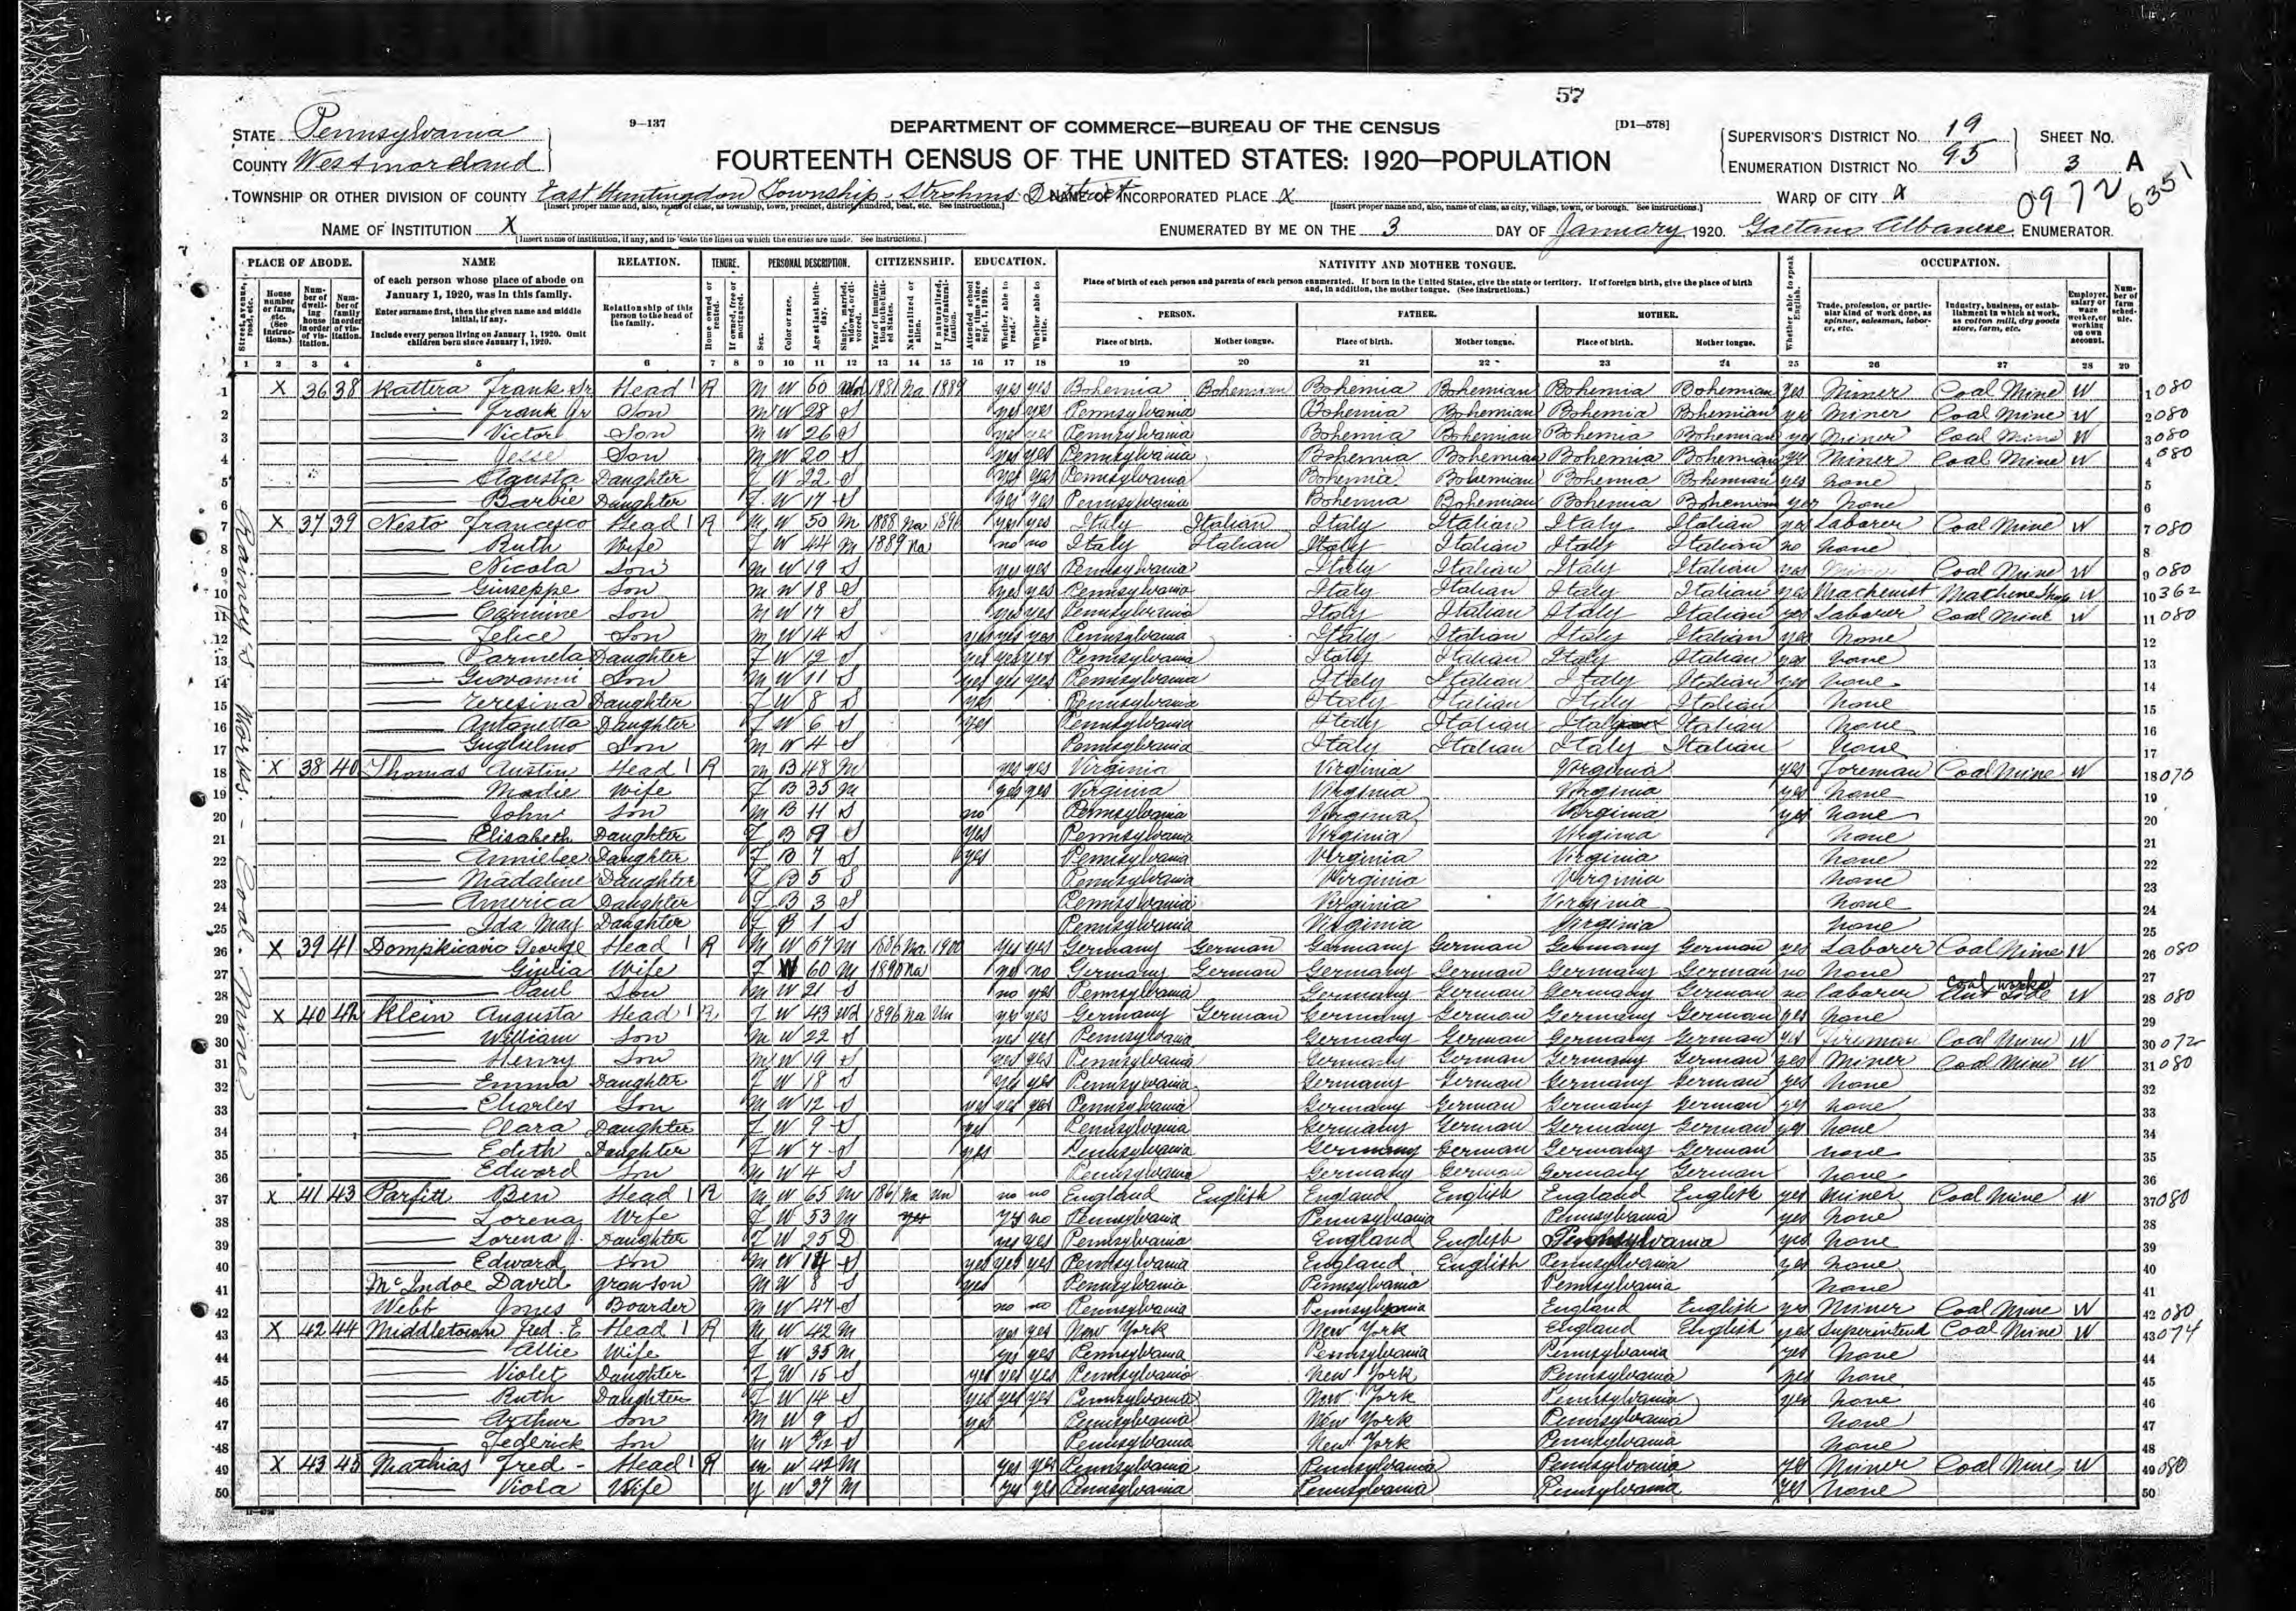 57
STATE Pennsylvania
9—137
DEPARTMENT OF COMMERCE—BUREAU OF THE CENSUS
[D1—578]
SUPERVISOR'S DISTRICT NO. 19
SHEET NO.
COUNTY Westmoreland
FOURTEENTH CENSUS OF THE UNITED STATES: 1920—POPULATION
ENUMERATION DISTRICT NO. 95
3 A
TOWNSHIP OR OTHER DIVISION OF COUNTY East Huntingdon Township - Strohms District
NAME OF INCORPORATED PLACE X
WARD OF CITY X
0972 6351
[Insert proper name and, also, name of class, as township, town, precinct, district, hundred, beat, etc. See instructions.]
[Insert proper name and, also, name of class, as city, village, town, or borough. See instructions.]
NAME OF INSTITUTION X
ENUMERATED BY ME ON THE 3 DAY OF January, 1920. Gaetano Albanese, ENUMERATOR.
[Insert name of institution, if any, and indicate the lines on which the entries are made. See instructions.]
PLACE OF ABODE. NAME RELATION. TENURE. PERSONAL DESCRIPTION. CITIZENSHIP. EDUCATION. NATIVITY AND MOTHER TONGUE. OCCUPATION.
of each person whose place of abode on January 1, 1920, was in this family.
Enter surname first, then the given name and middle initial, if any.
Include every person living on January 1, 1920. Omit children born since January 1, 1920.
Relationship of this person to the head of the family.
Place of birth of each person and parents of each person enumerated. If born in the United States, give the state or territory. If of foreign birth, give the place of birth and, in addition, the mother tongue. (See instructions.)
PERSON. FATHER. MOTHER.
Place of birth. Mother tongue. Place of birth. Mother tongue. Place of birth. Mother tongue.
Whether able to speak English.
Trade, profession, or particular kind of work done, as spinner, salesman, laborer, etc.
Industry, business, or establishment in which at work, as cotton mill, dry goods store, farm, etc.
Employer, salary or wage worker, or working on own account.
Number of farm schedule.
1 2 3 4 5 6 7 8 9 10 11 12 13 14 15 16 17 18 19 20 21 22 23 24 25 26 27 28 29
Rainey's Morses - Coal Mine
1 X 36 38 Kattera Frank Sr Head 1 R M W 60 Wd 1881 Na 1889 yes yes Bohemia Bohemian Bohemia Bohemian Bohemia Bohemian yes Miner Coal Mine W 1 080
2 Frank Jr Son M W 28 S yes yes Pennsylvania Bohemia Bohemian Bohemia Bohemian yes Miner Coal Mine W 2 080
3 Victor Son M W 26 S yes yes Pennsylvania Bohemia Bohemian Bohemia Bohemian yes Miner Coal Mine W 3 080
4 Jesse Son M W 20 S yes yes Pennsylvania Bohemia Bohemian Bohemia Bohemian yes Miner Coal Mine W 4 080
5 Agusta Daughter F W 22 S yes yes Pennsylvania Bohemia Bohemian Bohemia Bohemian yes none 5
6 Barbie Daughter F W 17 S yes yes Pennsylvania Bohemia Bohemian Bohemia Bohemian yes None 6
7 X 37 39 Nesto Francesco Head 1 R M W 50 M 1888 Na 1896 yes yes Italy Italian Italy Italian Italy Italian yes Laborer Coal Mine W 7 080
8 Ruth Wife F W 44 M 1889 Na no no Italy Italian Italy Italian Italy Italian no None 8
9 Nicola Son M W 19 S yes yes Pennsylvania Italy Italian Italy Italian yes Miner Coal Mine W 9 080
10 Giuseppe Son M W 18 S yes yes Pennsylvania Italy Italian Italy Italian yes Machenist Machine Shop W 10 362
11 Carmine Son M W 17 S yes yes Pennsylvania Italy Italian Italy Italian yes Laborer Coal Mine W 11 080
12 Felice Son M W 14 S yes yes yes Pennsylvania Italy Italian Italy Italian yes None 12
13 Carmela Daughter F W 12 S yes yes yes Pennsylvania Italy Italian Italy Italian yes None 13
14 Giovanni Son M W 11 S yes yes yes Pennsylvania Italy Italian Italy Italian yes None 14
15 Teresina Daughter F W 8 S yes Pennsylvania Italy Italian Italy Italian None 15
16 Antonetta Daughter F W 6 S yes Pennsylvania Italy Italian Italy Italian None 16
17 Guglielmo Son M W 4 S Pennsylvania Italy Italian Italy Italian None 17
18 X 38 40 Thomas Austin Head 1 R M B 48 M yes yes Virginia Virginia Virginia yes Foreman Coal Mine W 18 070
19 Madie Wife F B 35 M yes yes Virginia Virginia Virginia yes None 19
20 John Son M B 11 S no Pennsylvania Virginia Virginia yes None 20
21 Elisabeth Daughter F B 9 S Yes Pennsylvania Virginia Virginia None 21
22 Annielee Daughter F B 7 S yes Pennsylvania Virginia Virginia None 22
23 Madaline Daughter F B 5 S Pennsylvania Virginia Virginia None 23
24 America Daughter F B 3 S Pennsylvania Virginia Virginia None 24
25 Ida May Daughter F B 1 S Pennsylvania Virginia Virginia None 25
26 X 39 41 Dompkicavic George Head 1 R M W 67 M 1886 Na 1900 yes yes Germany German Germany German Germany German yes Laborer Coal Mine W 26 080
27 Giulia Wife F W 60 M 1890 Na yes no Germany German Germany German Germany German no None 27
28 Paul Son M W 21 S no yes Pennsylvania Germany German Germany German no laborer Coal works Out Side W 28 080
29 X 40 42 Klein Augusta Head 1 R F W 43 Wd 1896 Na Un yes yes Germany German Germany German Germany German yes None 29
30 William Son M W 22 S yes yes Pennsylvania Germany German Germany German yes Fireman Coal Mine W 30 072
31 Henry Son M W 19 S yes yes Pennsylvania Germany German Germany German yes Miner Coal Mine W 31 080
32 Emma Daughter F W 18 S yes yes Pennsylvania Germany German Germany German yes None 32
33 Charles Son M W 12 S yes yes yes Pennsylvania Germany German Germany German yes None 33
34 Clara Daughter F W 9 S yes Pennsylvania Germany German Germany German yes None 34
35 Edith Daughter F W 7 S yes Pennsylvania Germany German Germany German none 35
36 Edward Son M W 4 S Pennsylvania Germany German Germany German None 36
37 X 41 43 Parfitt Ben Head 1 R M W 65 M 1861 Na Un no no England English England English England English yes Miner Coal Mine W 37 080
38 Lorena Wife F W 53 M yes yes no Pennsylvania Pennsylvania Pennsylvania yes None 38
39 Lorena J. Daughter F W 25 D yes yes Pennsylvania England English Pennsylvania yes None 39
40 Edward Son M W 14 S yes yes yes Pennsylvania England English Pennsylvania yes None 40
41 McIndoe David granson M W 8 S yes Pennsylvania Pennsylvania Pennsylvania None 41
42 Webb Jones Boarder M W 47 S no no Pennsylvania Pennsylvania England English yes Miner Coal Mine W 42 080
43 X 42 44 Middletown Fred. E Head 1 R M W 42 M yes yes New York New York England English yes Superintend Coal Mine W 43 074
44 Allie Wife F W 35 M yes yes Pennsylvania Pennsylvania Pennsylvania yes None 44
45 Violet Daughter F W 15 S yes yes yes Pennsylvania New York Pennsylvania yes None 45
46 Ruth Daughter F W 14 S yes yes yes Pennsylvania New York Pennsylvania yes None 46
47 Arthur Son M W 9 S yes Pennsylvania New York Pennsylvania None 47
48 Federick Son M W S Pennsylvania New York Pennsylvania None 48
49 X 43 45 Mathias Fred - Head 1 R M W 42 M yes yes Pennsylvania Pennsylvania Pennsylvania yes Miner Coal Mine W 49 080
50 Viola Wife F W 37 M yes yes Pennsylvania Pennsylvania Pennsylvania yes None 50